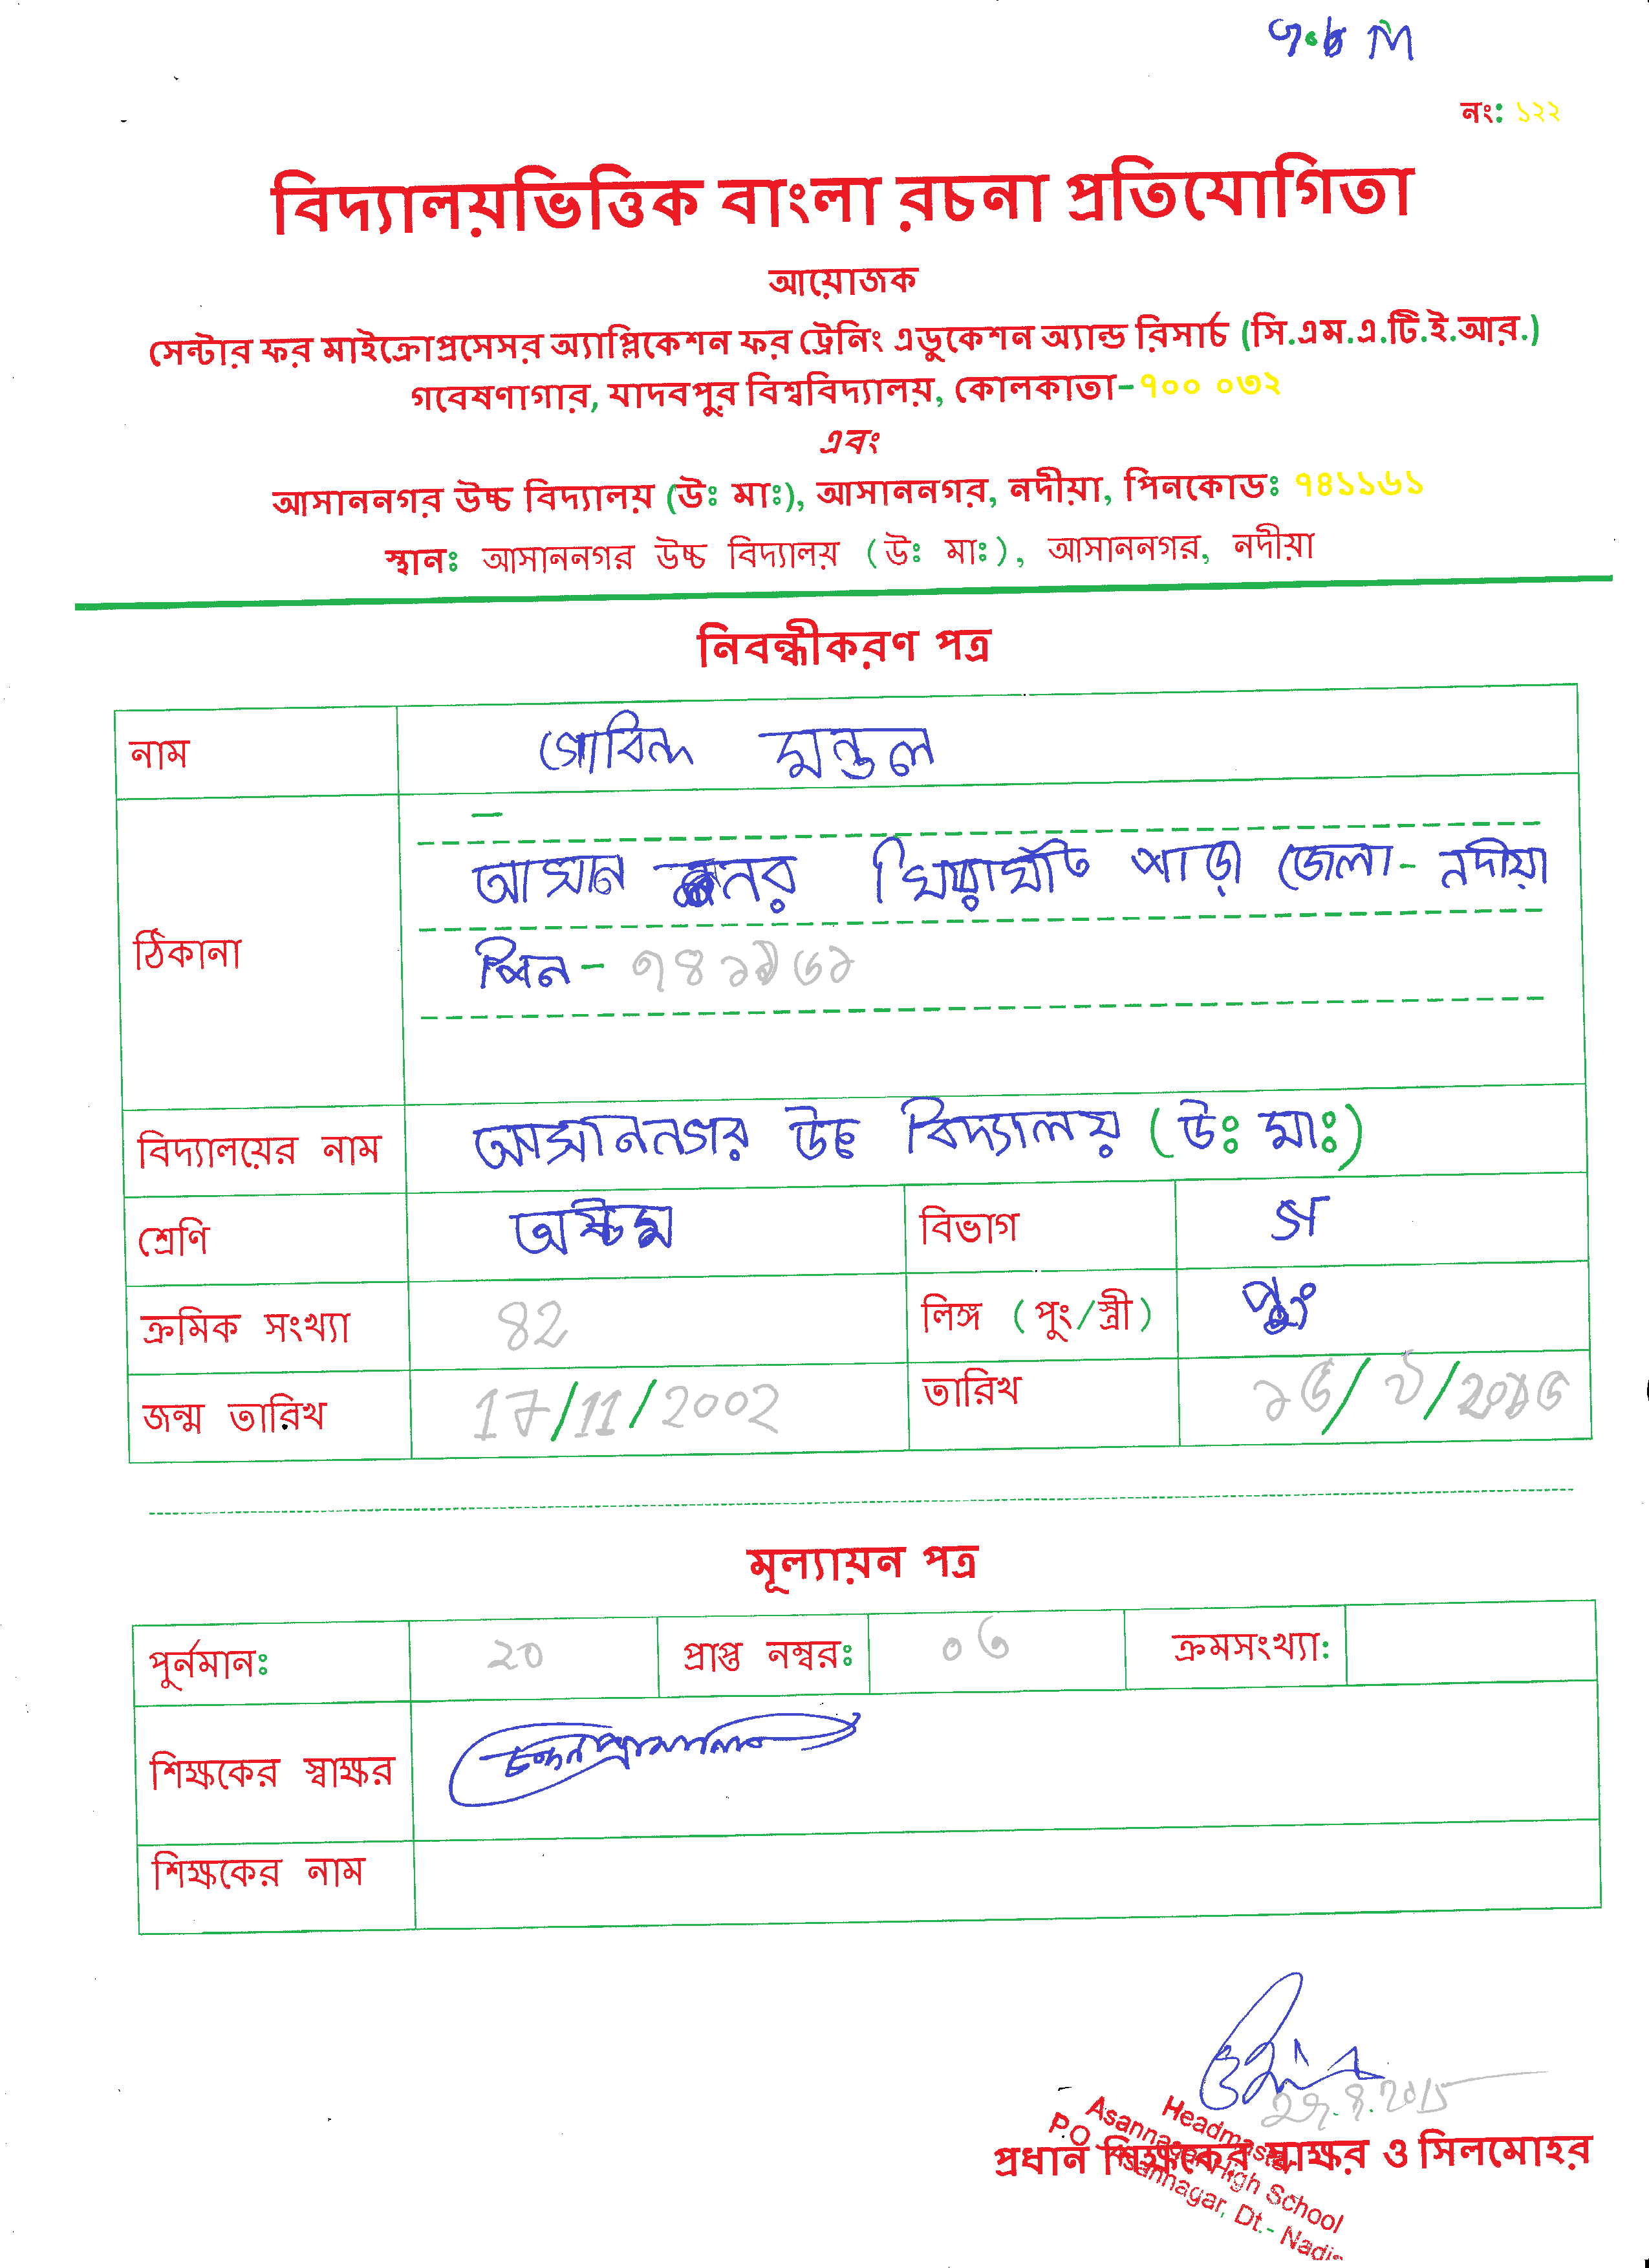 ৭.৮ M
নং: ১২২
বিদ্যালয়ভিত্তিক বাংলা রচনা প্রতিযোগিতা
আয়োজক
সেন্টার ফর মাইক্রোপ্রসেসর অ্যাপ্লিকেশন ফর ট্রেনিং এডুকেশন অ্যান্ড রিসার্চ (সি.এম.এ.টি.ই.আর.)
গবেষণাগার, যাদবপুর বিশ্ববিদ্যালয়, কোলকাতা-৭০০ ০৩২
এবং
আসাননগর উচ্চ বিদ্যালয় (উঃ মাঃ), আসাননগর, নদীয়া, পিনকোডঃ ৭৪১১৬১
স্থানঃ আসাননগর উচ্চ বিদ্যালয় (উঃ মাঃ), আসাননগর, নদীয়া
নিবন্ধীকরণ পত্র
নাম গোবিন্দ মন্ডল
ঠিকানা
আসান নগর পাড়া জেলা- নদীয়া
পিন- ৭৪১১৬১
বিদ্যালয়ের নাম আসাননগর উচ্চ বিদ্যালয় (উঃ মাঃ)
শ্রেণি অষ্টম বিভাগ গ
ক্রমিক সংখ্যা 82 লিঙ্গ (পুং/স্ত্রী) পুং
জন্ম তারিখ 17/11/2002 তারিখ
মূল্যায়ন পত্র
পুর্নমানঃ 20 প্রাপ্ত নম্বরঃ ০৬ ক্রমসংখ্যা:
শিক্ষকের স্বাক্ষর
শিক্ষকের নাম
প্রধান শিক্ষকের স্বাক্ষর ও সিলমোহর
Headmaster
Asannagar High School
P.O. Asannagar, Dt.- Nadi